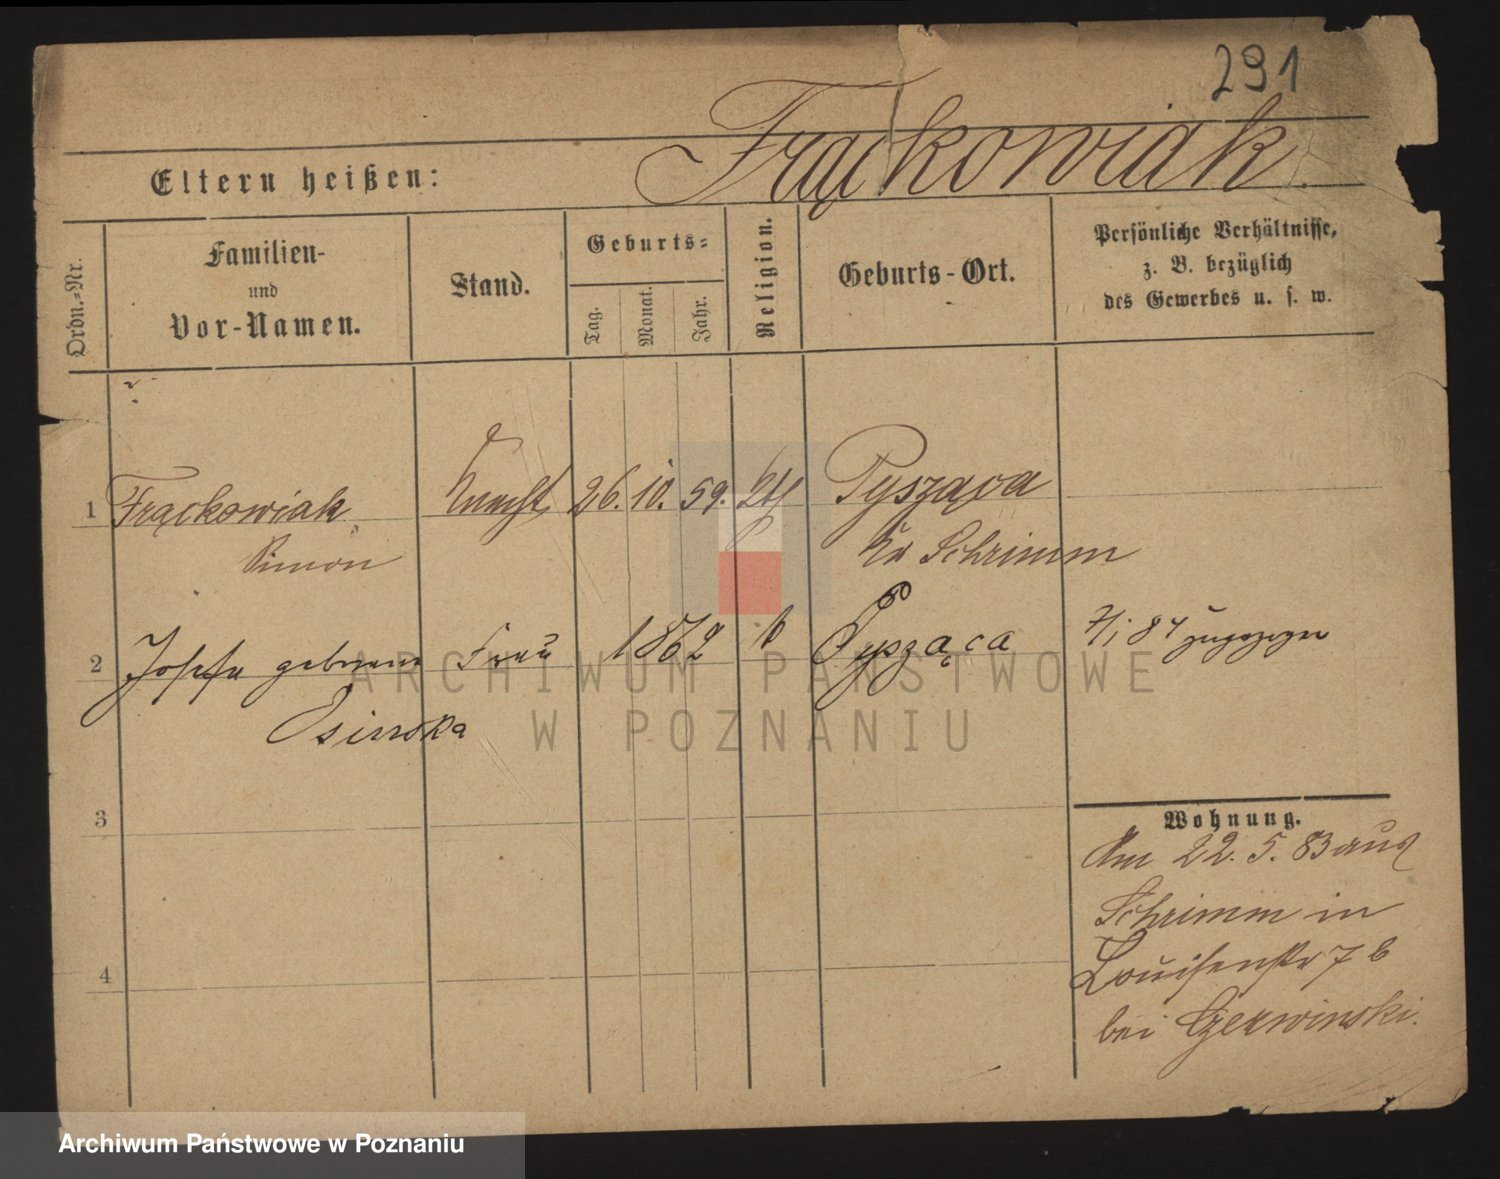 291
Frąckowiak.
Eltern heißen:
Ordn.=Nr.
Familien-
und
Vor-Namen.
Stand.
Geburts=
Tag.
Monat.
Jahr.
Religion.
Geburts-Ort.
Persönliche Verhältnisse,
z. B. bezüglich
des Gewerbes u. s. w.
1 Frąckowiak Knecht 26. 10. 59. kth Pysząca
Simon Kr Schrimm
2 Josefa geborene Frau 1862 k Pysząca 84 zugezogen
Osinska
3
4
Wohnung.
Am 22. 5. 83 aus
Schrimm in
Louisenstr 7 b
bei Czerwinski.
ARCHIWUM PAŃSTWOWE
W POZNANIU
Archiwum Państwowe w Poznaniu